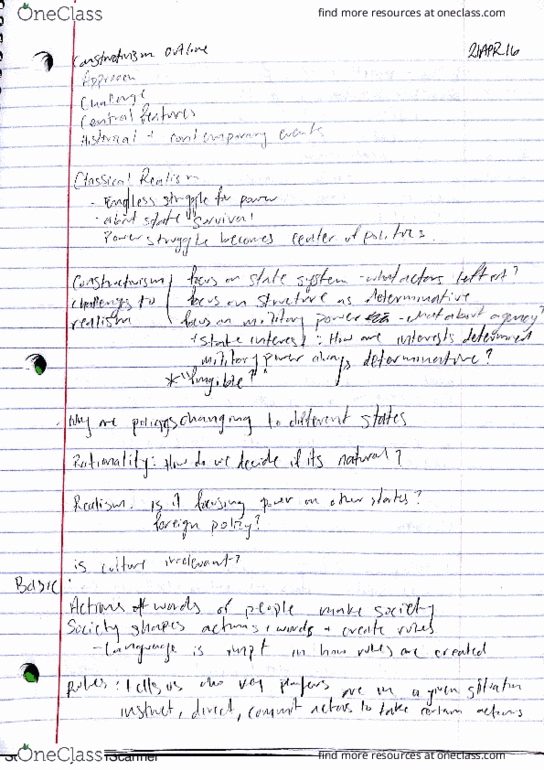 OneClass
find more resources at oneclass.com
Constructivism outline
21APR16
Approach
Challenge
Central features
Historical + contemporary events
Classical Realism
- Endless struggle for power
- about state "survival
Power struggle becomes center of politics
Constructivism focus on state system - what actors left out?
challenges to focus on structure as determinative
realism focus on military power - what about agency?
+ state interest : How are interests determined
military power always determinative?
* "fungible?"
Why are policies changing to different states
Rationality: How do we decide if its natural?
Realism. is it focusing power on other states?
foreign policy?
is culture irrelevant?
Basic
Actions + words of people make society
Society shapes actions + words + create rules
- Language is impt in how rules are created
Rules: Tells us who key players are in a given situation
instruct, direct, commit actors to take certain actions
OneClass
Scanner
find more resources at oneclass.com